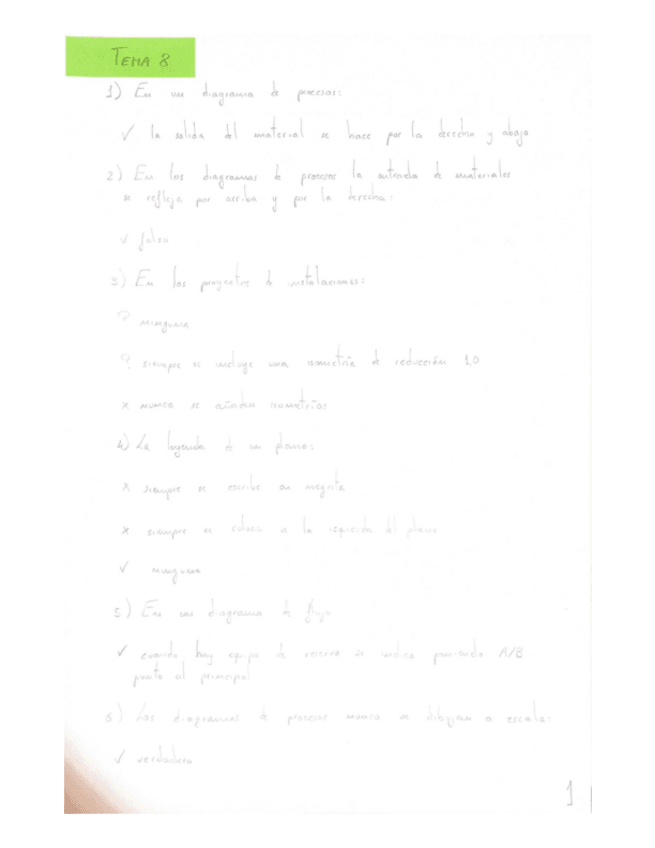 TEMA 8
1) En un diagrama de procesos:
✓ la salida del material se hace por la derecha y abajo
2) En los diagramas de procesos la entrada de materiales
se refleja por arriba y por la derecha:
✓ falso
3) En los proyectos de instalaciones:
? ninguna
? siempre se incluye una isometría de reducción 1,0
x nunca se añaden isometrías
4) La leyenda de un plano:
x siempre se escribe en negrita
x siempre se coloca a la izquierda del plano
✓ ninguna
5) En un diagrama de flujo
✓ cuando hay equipo de reserva se indica poniendo A/B
junto al principal
6) Los diagramas de procesos nunca se dibujan a escala:
✓ verdadero
1